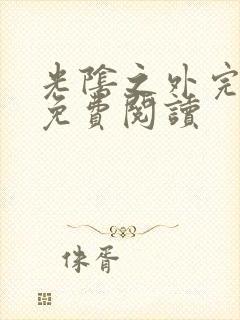 光陰之外完
免費閱讀
佚胥